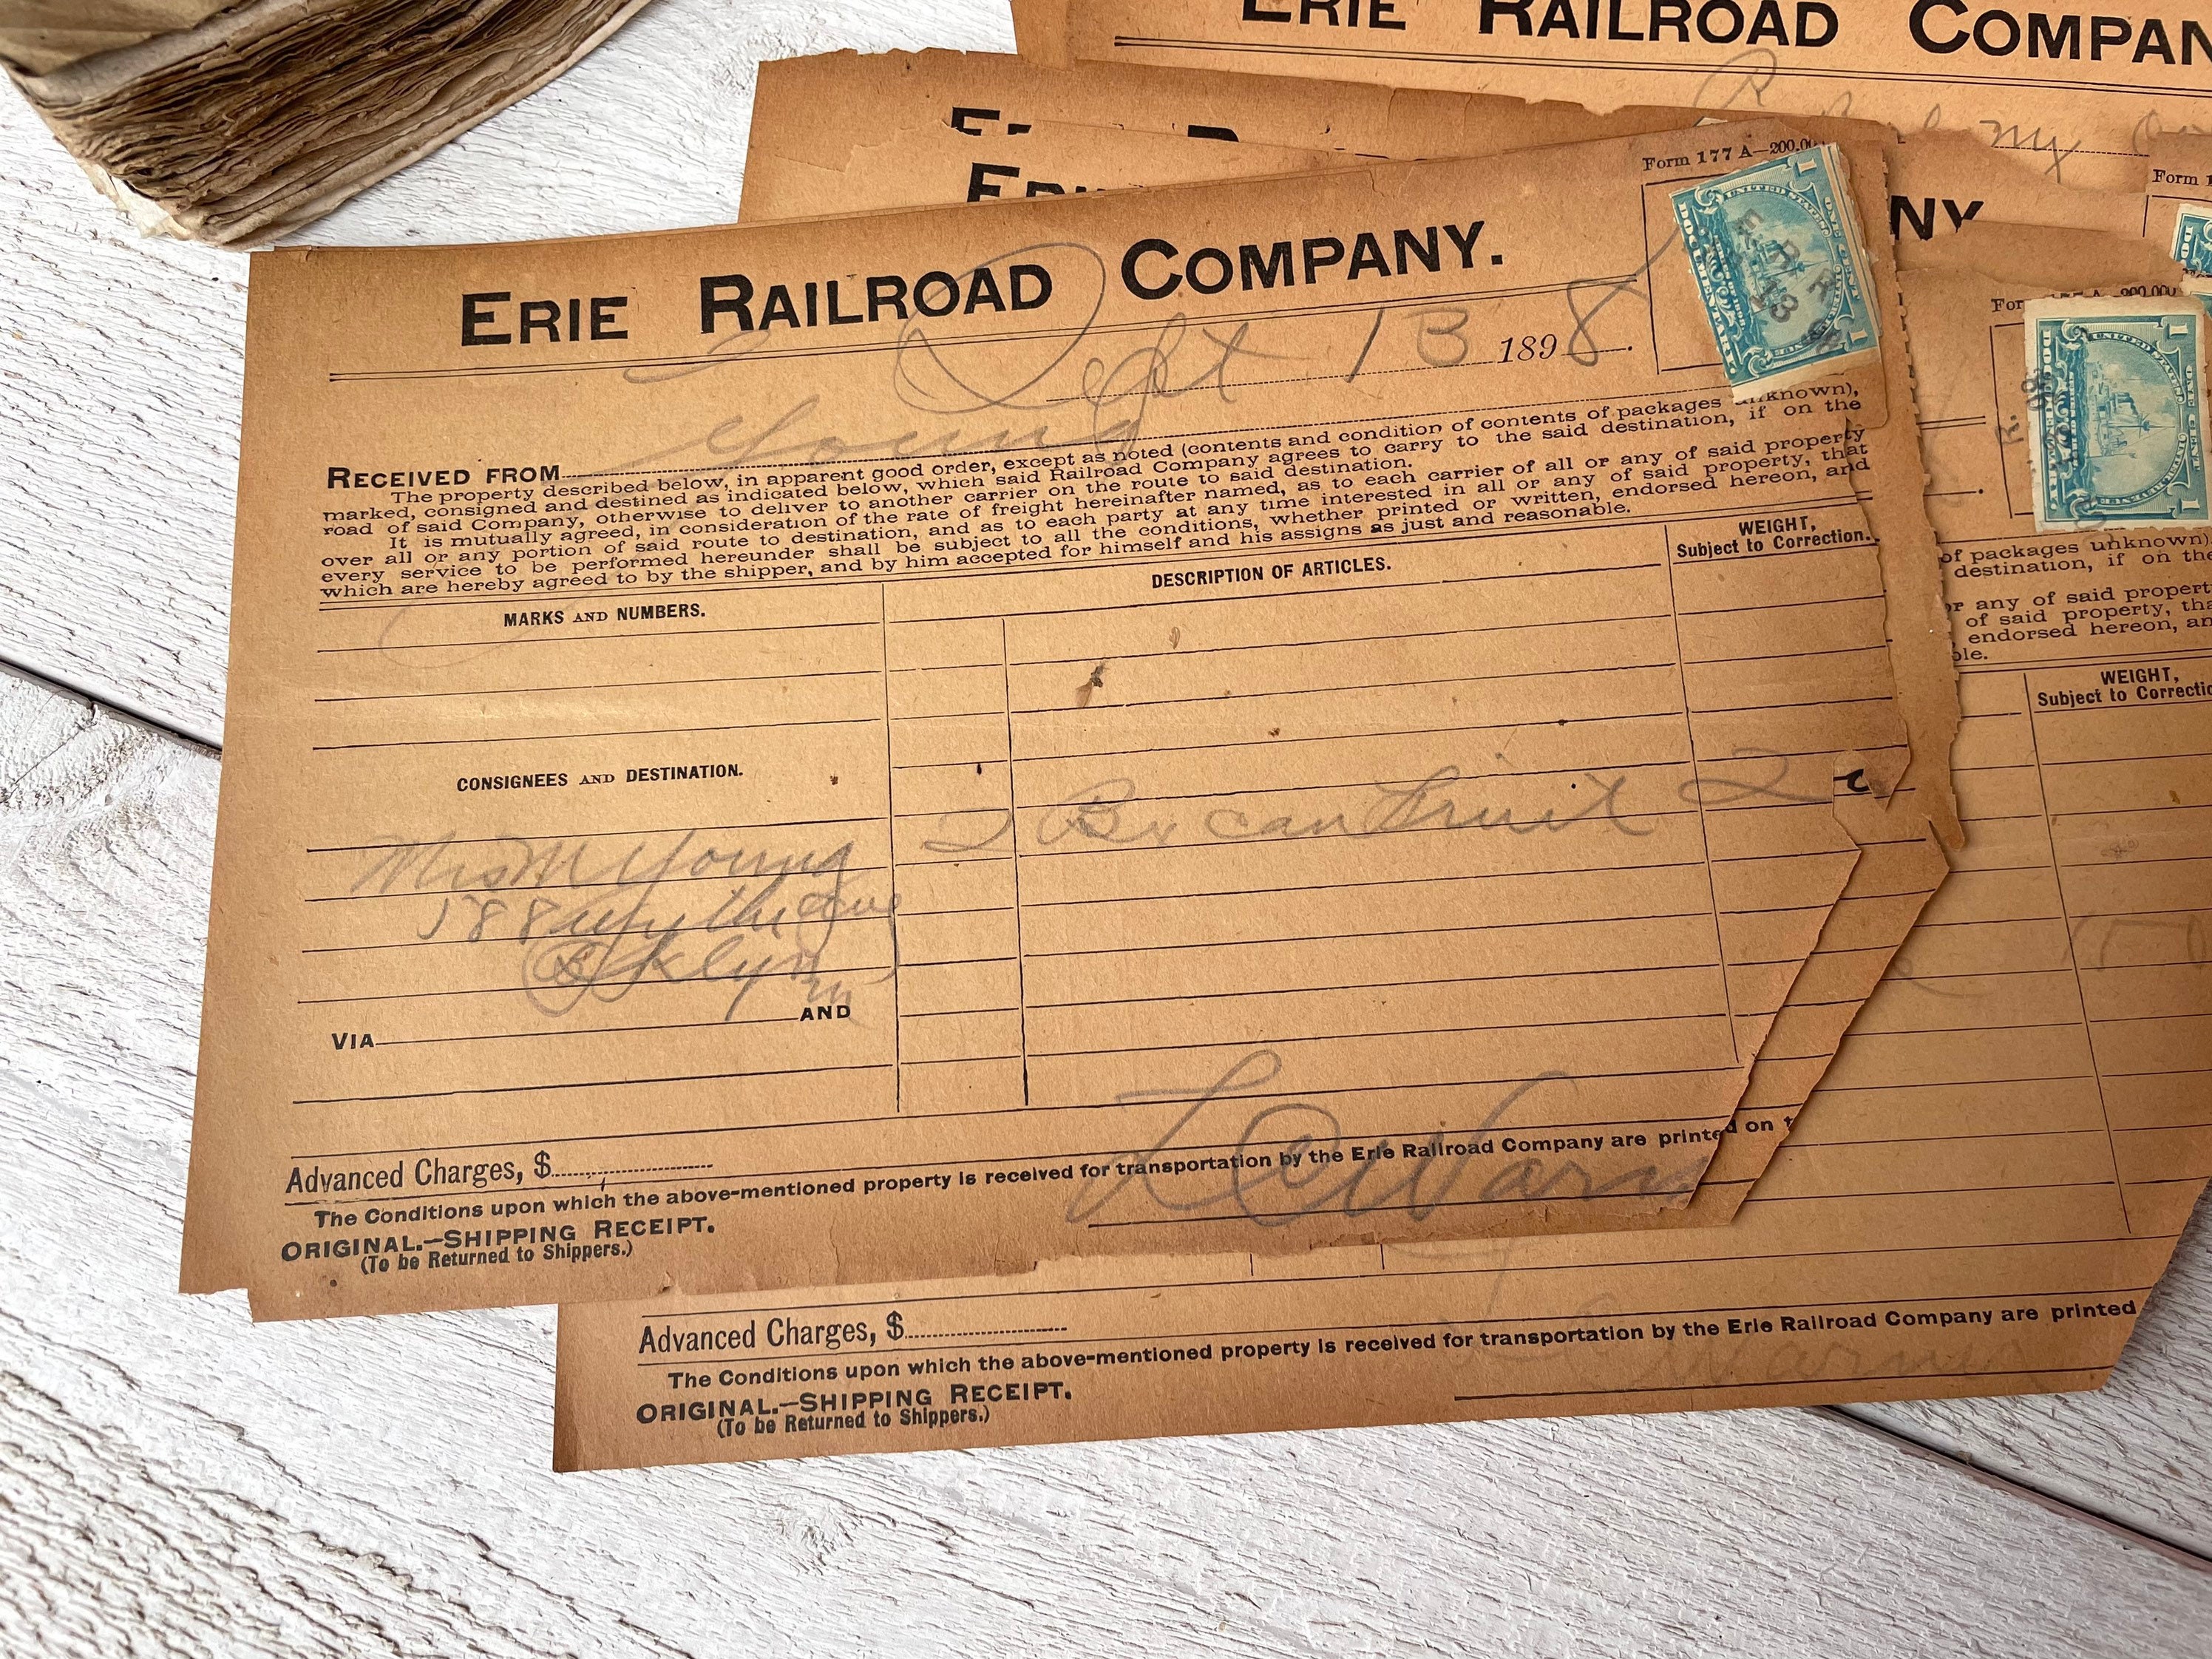 ERIE RAILROAD COMPAN
Form 177 A—200,00
ERIE RAILROAD COMPANY.
Sept 13 1898.
UNITED STATES
ONE CENT
DOCUMENTARY
1
1
E. R. R.
13
RECEIVED FROM Young
The property described below, in apparent good order, except as noted (contents and condition of contents of packages unknown),
marked, consigned and destined as indicated below, which said Railroad Company agrees to carry to the said destination, if on the
road of said Company, otherwise to deliver to another carrier on the route to said destination.
It is mutually agreed, in consideration of the rate of freight hereinafter named, as to each carrier of all or any of said property
over all or any portion of said route to destination, and as to each party at any time interested in all or any of said property, that
every service to be performed hereunder shall be subject to all the conditions, whether printed or written, endorsed hereon, and
which are hereby agreed to by the shipper, and by him accepted for himself and his assigns as just and reasonable.
MARKS AND NUMBERS.
DESCRIPTION OF ARTICLES.
WEIGHT,
Subject to Correction.
CONSIGNEES AND DESTINATION.
2 Bx can Fruit 2
Mrs M Young
188 Wythe Ave
Bklyn
VIA AND
Advanced Charges, $
The Conditions upon which the above-mentioned property is received for transportation by the Erie Railroad Company are printed on t
ORIGINAL.—SHIPPING RECEIPT.
(To be Returned to Shippers.)
NY
Form 1
UNITED STATES
ONE CENT
DOCUMENTARY
1
1
of packages unknown),
destination, if on the
or any of said property
of said property, tha
endorsed hereon, an
ble.
WEIGHT,
Subject to Correctio
Advanced Charges, $
The Conditions upon which the above-mentioned property is received for transportation by the Erie Railroad Company are printed
ORIGINAL.—SHIPPING RECEIPT.
(To be Returned to Shippers.)